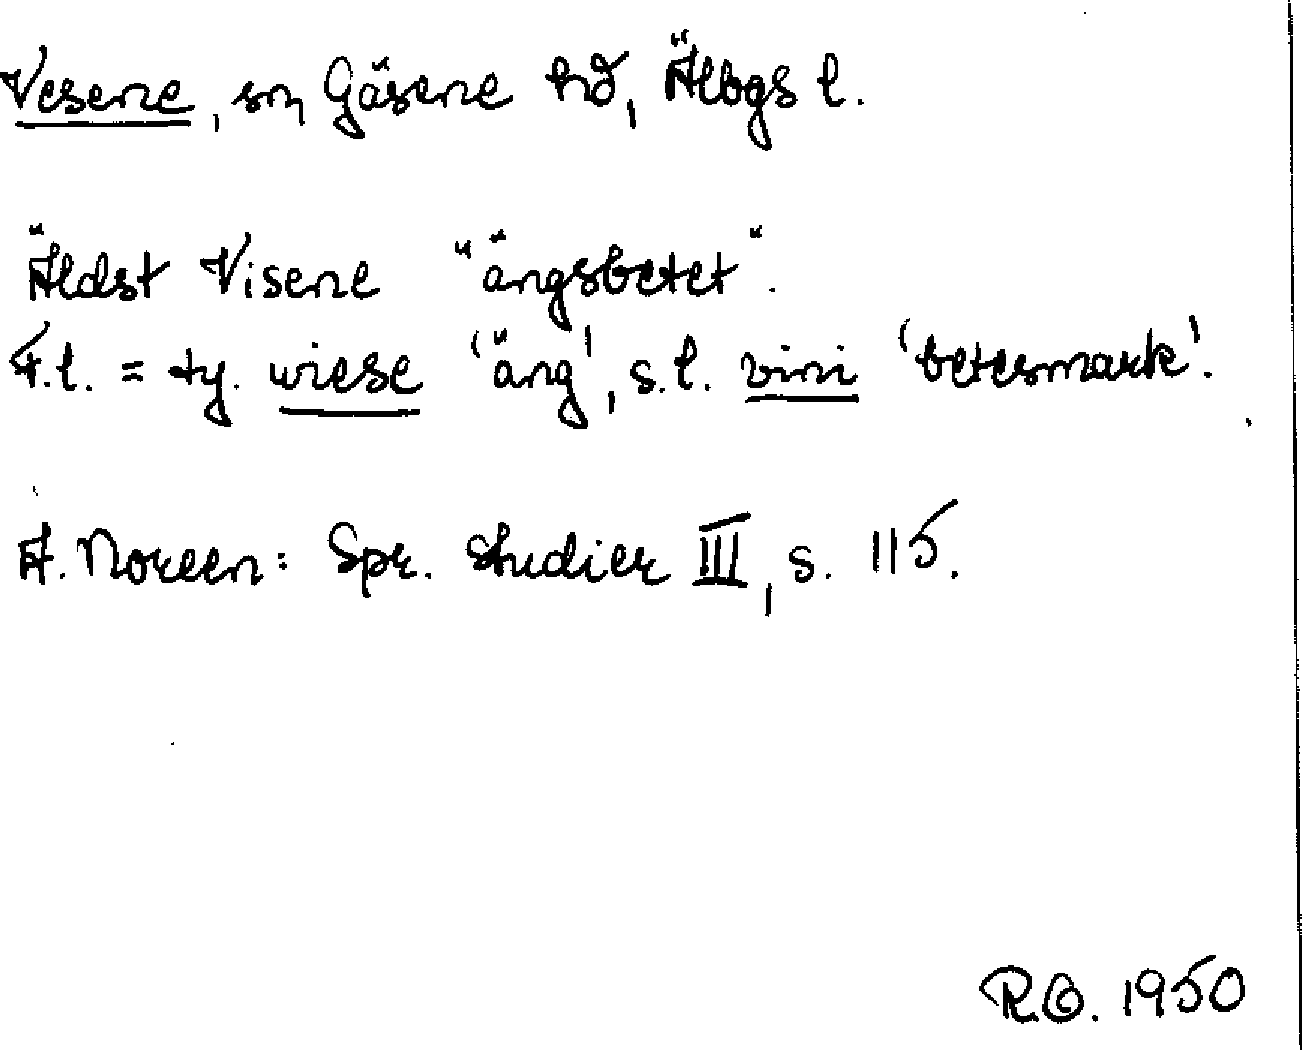 Vesene, sn Gäsene hd, Älvbgs l.
Äldst Visene "ängsbetet".
F.l. = ty. wiese 'äng', s.l. vini 'betesmark'.
A. Noreen: Spr. studier III, s. 115.
R.O. 1950